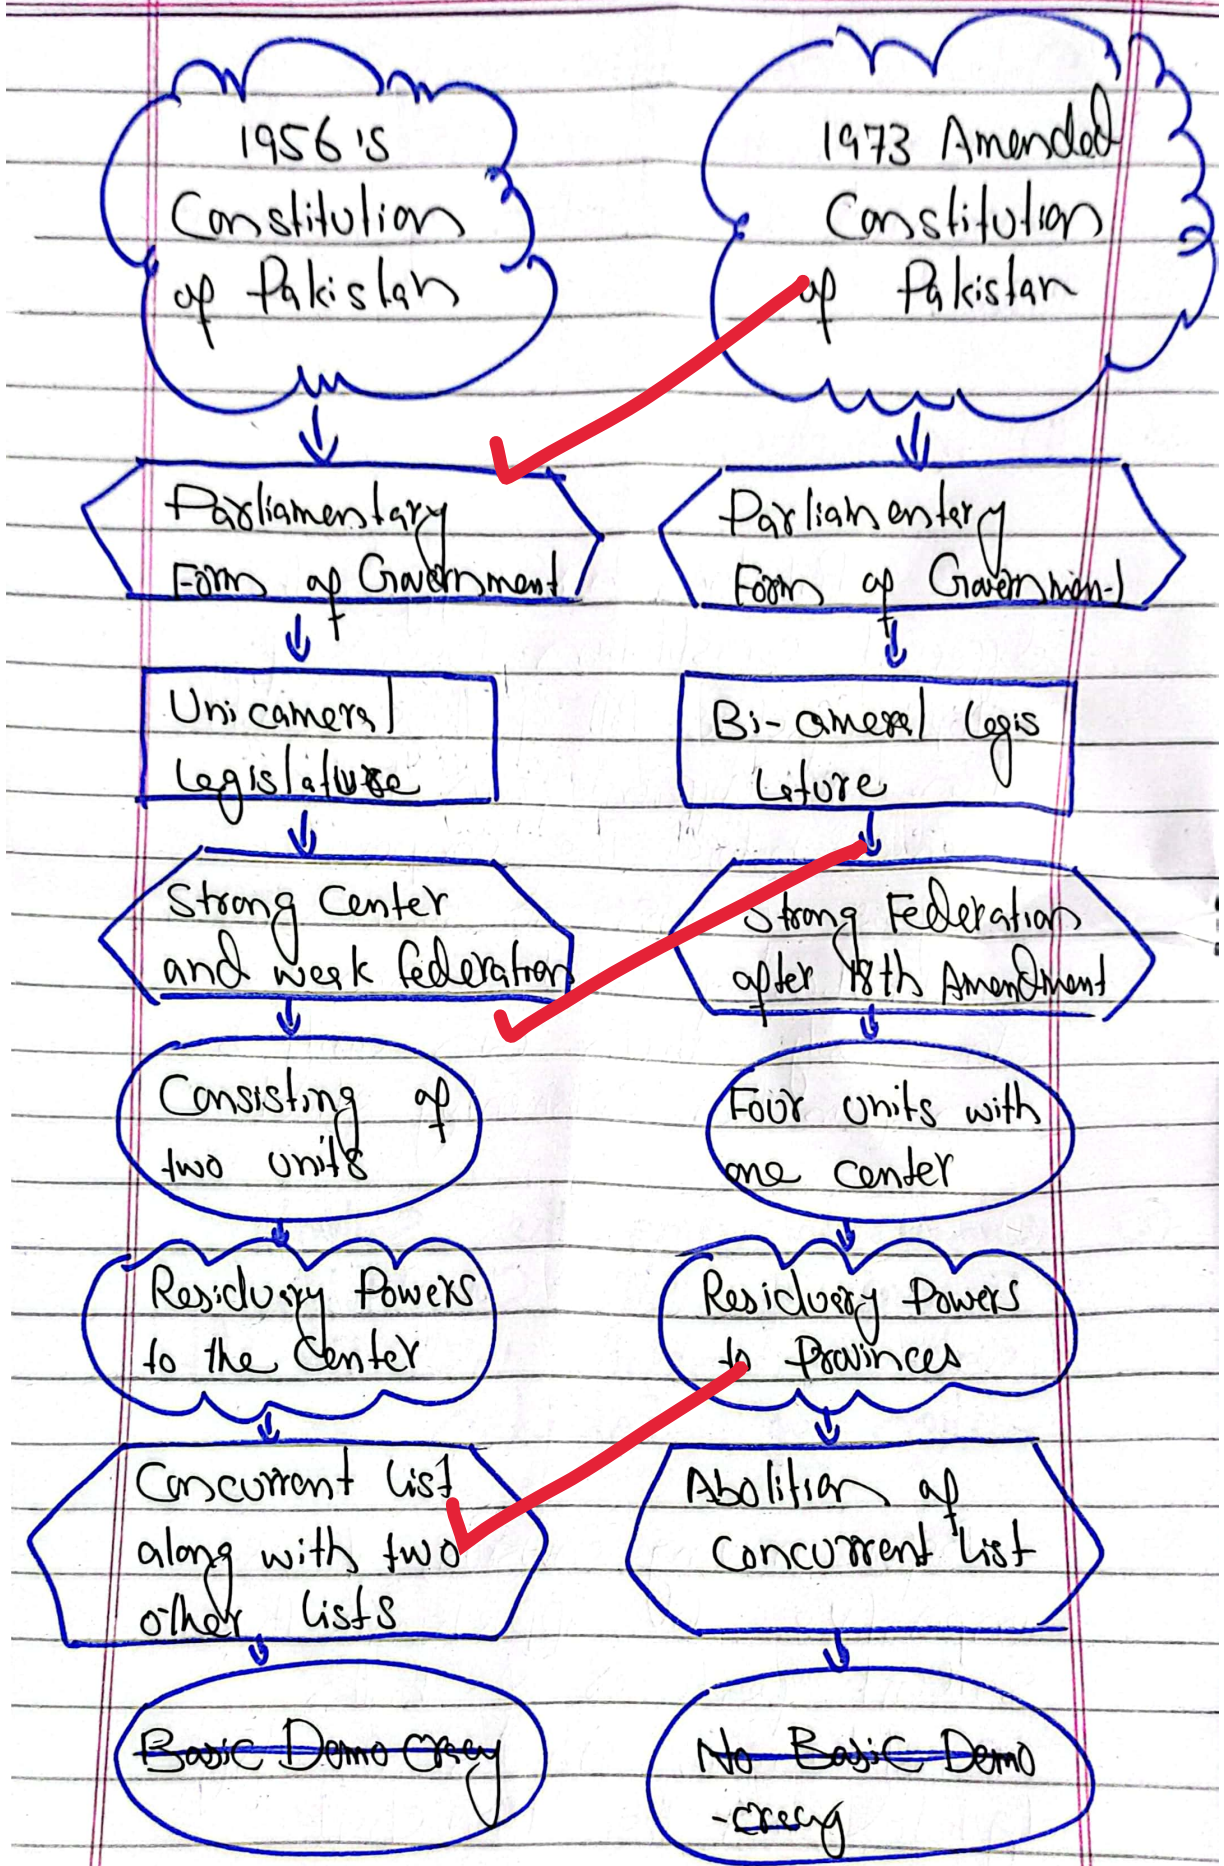 1956's
Constitution
of Pakistan
Parliamentary
Form of Government
Unicameral
Legislature
Strong Center
and weak federation
Consisting of
two units
Residuary Powers
to the Center
Concurrent list
along with two
other lists
Basic Democracy
1973 Amended
Constitution
of Pakistan
Parliamentery
Form of Government
Bi-cameral legis
lature
Strong Federation
after 18th Amendment
Four units with
one center
Residuary Powers
to Provinces
Abolition of
Concurrent list
No Basic Demo
-cracy